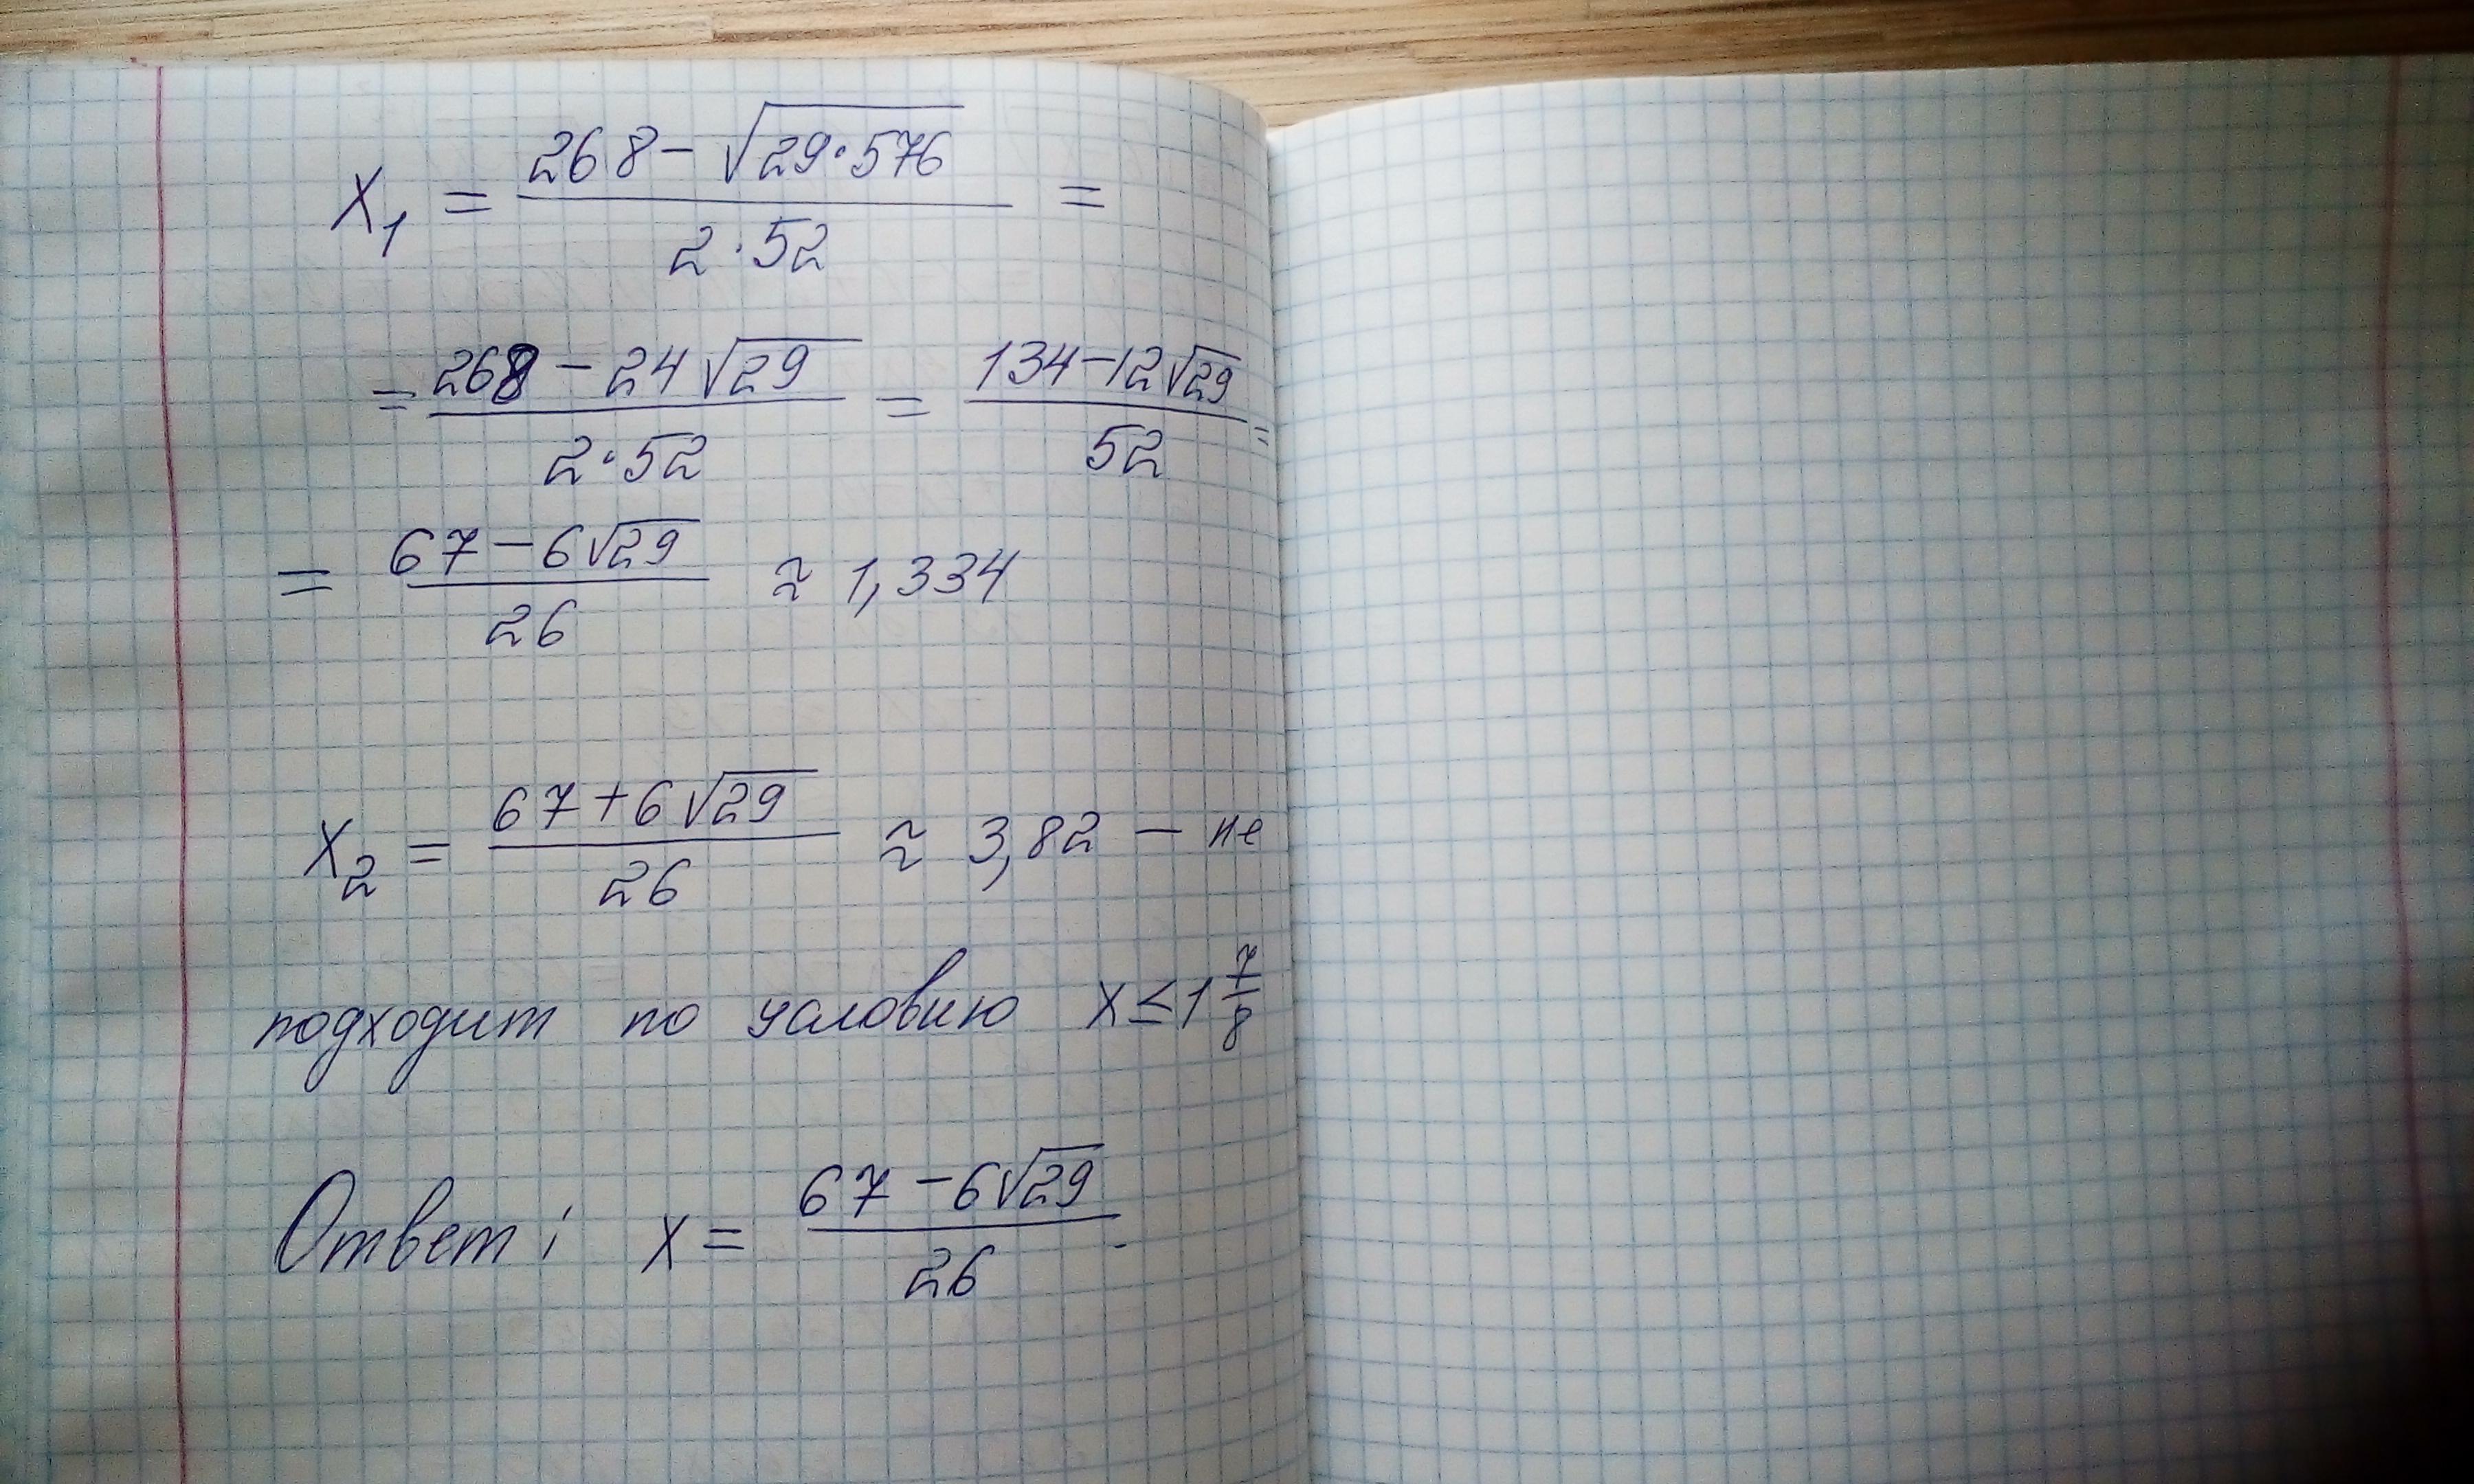 x₁ = (268 − √(29·576)) / (2·52) =
= (268 − 24√29) / (2·52) = (134 − 12√29) / 52 =
= (67 − 6√29) / 26 ≈ 1,334
x₂ = (67 + 6√29) / 26 ≈ 3,82 − не
подходит по условию x ≤ 1 7/8
Ответ: x = (67 − 6√29) / 26.